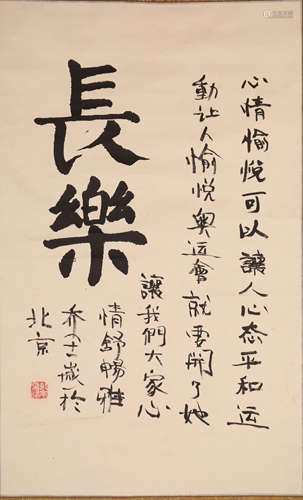 長樂
心情愉悦可以讓人心态平和运
動让人愉悦奥运會就要開了她
讓我們大家心
情舒暢雅
於
北京